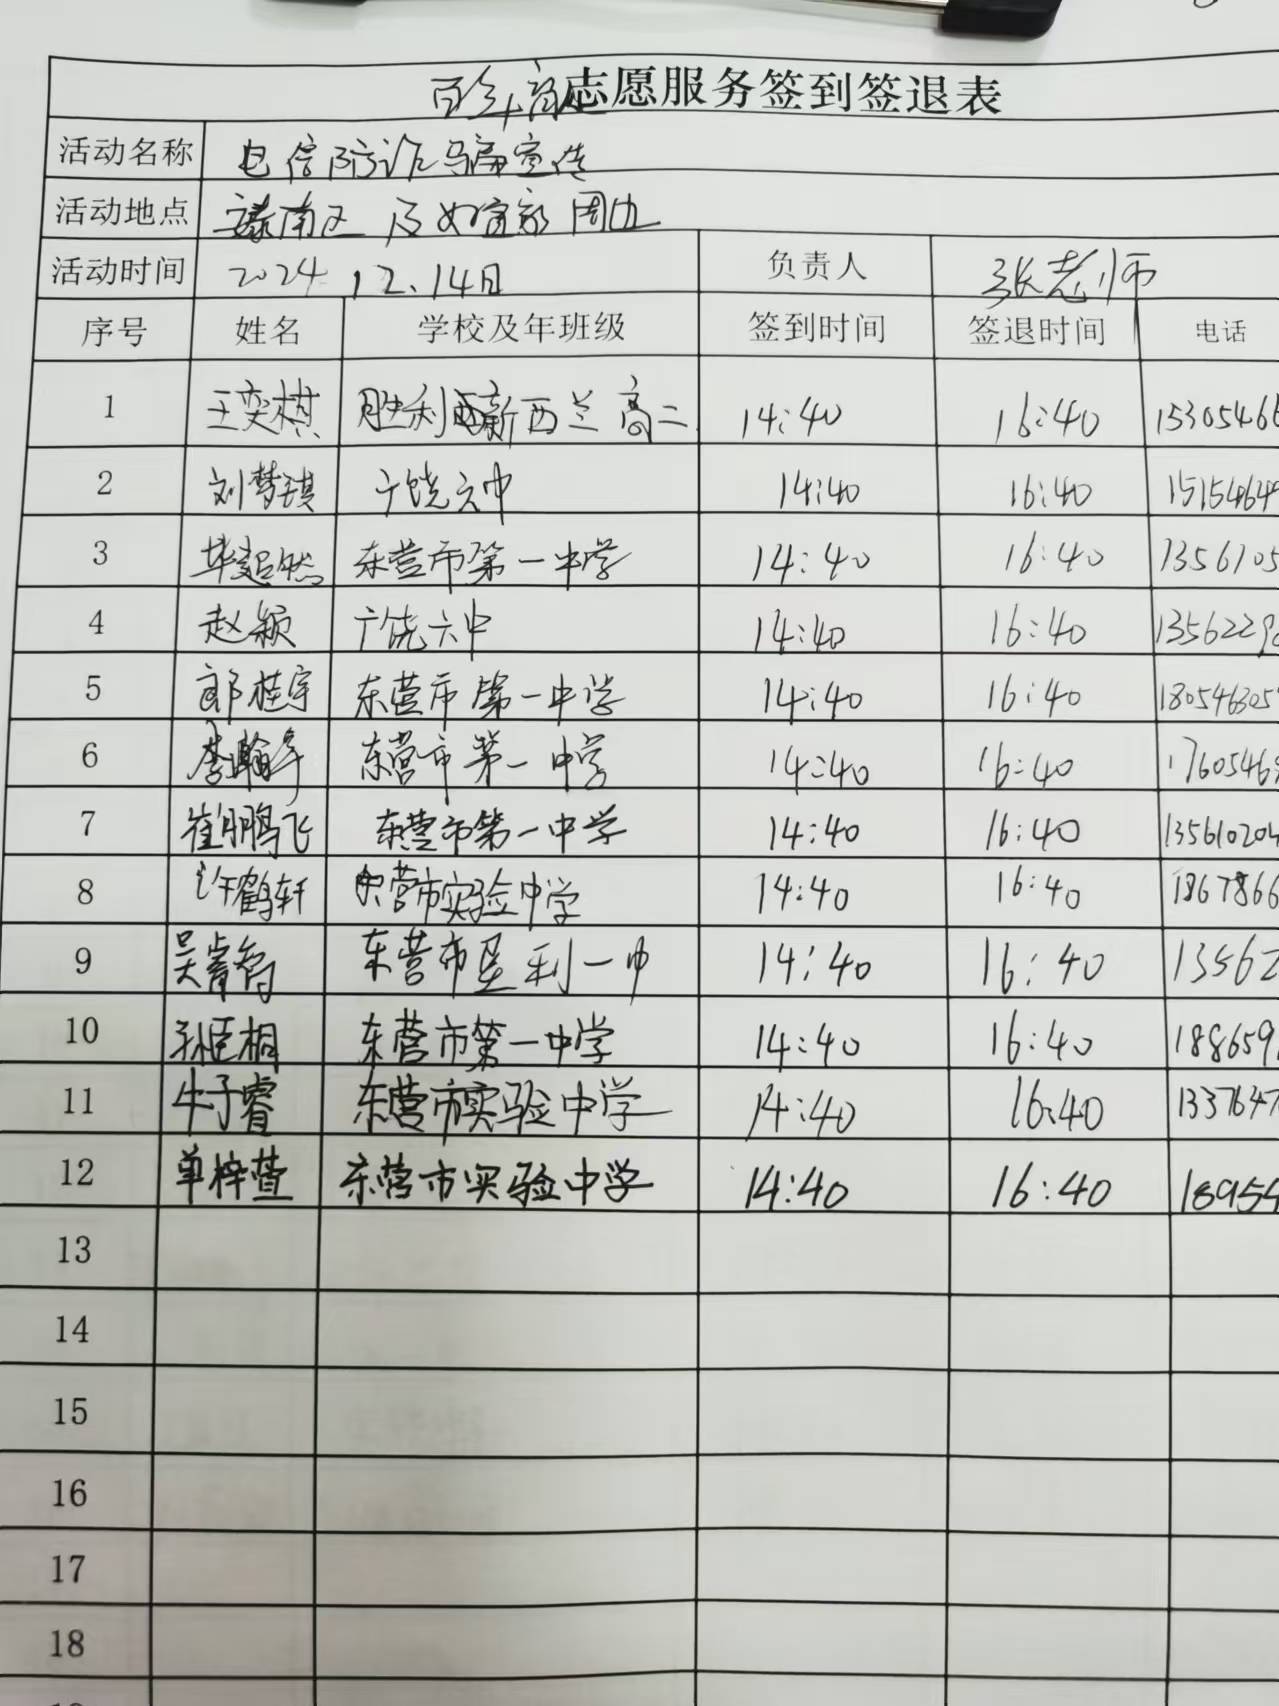 百年 志愿服务签到签退表
活动名称 电信防诈骗宣传
活动地点 南区及如宜家周边
活动时间 2024.12.14日 负责人 张老师
序号 姓名 学校及年班级 签到时间 签退时间 电话
1 王奕棋 胜利新西兰高二 14:40 16:40 15305466
2 刘梦琪 广饶六中 14:40 16:40 15154649
3 毕超然 东营市第一中学 14:40 16:40 1356105
4 赵颖 广饶六中 14:40 16:40 13562296
5 郎桂宇 东营市第一中学 14:40 16:40 180546305
6 李瀚 东营市第一中学 14:40 16:40 17605469
7 崔鹏飞 东营市第一中学 14:40 16:40 135610204
8 许鹤轩 东营市实验中学 14:40 16:40 1867866
9 吴 东营市垦利一中 14:40 16:40 13562
10 孙臣桐 东营市第一中学 14:40 16:40 1886591
11 牛子睿 东营市实验中学 14:40 16:40 1337647
12 单梓萱 东营市实验中学 14:40 16:40 18954
13
14
15
16
17
18